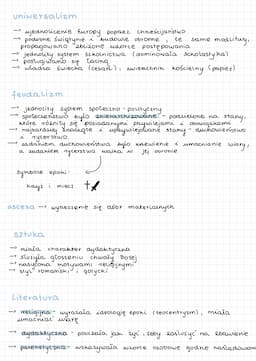 uniwersalizm
→ ujednolicenie Europy poprzez chrześcijaństwo
→ podobne świątynie i budowle obronne, te same modlitwy,
propagowano zbliżone wzorce postępowania
→ jednolity system szkolnictwa (dominowała scholastyka)
→ posługiwano się łaciną
→ władza świecka (cesarz), zwierzchnik kościelny (papież)
feudalizm
→ jednolity system społeczno-polityczny
→ społeczeństwo było zhierarchizowane - podzielone na stany,
które różniły się posiadanymi przywilejami i obowiązkami
→ najbardziej znaczące i uprzywilejowane stany - duchowieństwo
i rycerstwo
→ zadaniem duchowieństwa było krzewienie i umacnianie wiary,
a zadaniem rycerstwa walka w jej obronie
symbole epoki:
krzyż i miecz
asceza → wyrzeszenie się dóbr materialnych
sztuka
→ miała charakter dydaktyczny
→ służyła głoszeniu chwały Bożej
→ nasycona motywami religijnymi
→ styl romański i gotycki
literatura
→ religijna - wyrażała ideologię epoki (teocentryzm), miała
umacniać wiarę
→ dydaktyczna - pouczała jak żyć, żeby zasłużyć na zbawienie
→ parenetyczna - wskazywała wzorce osobowe godne naśladowania